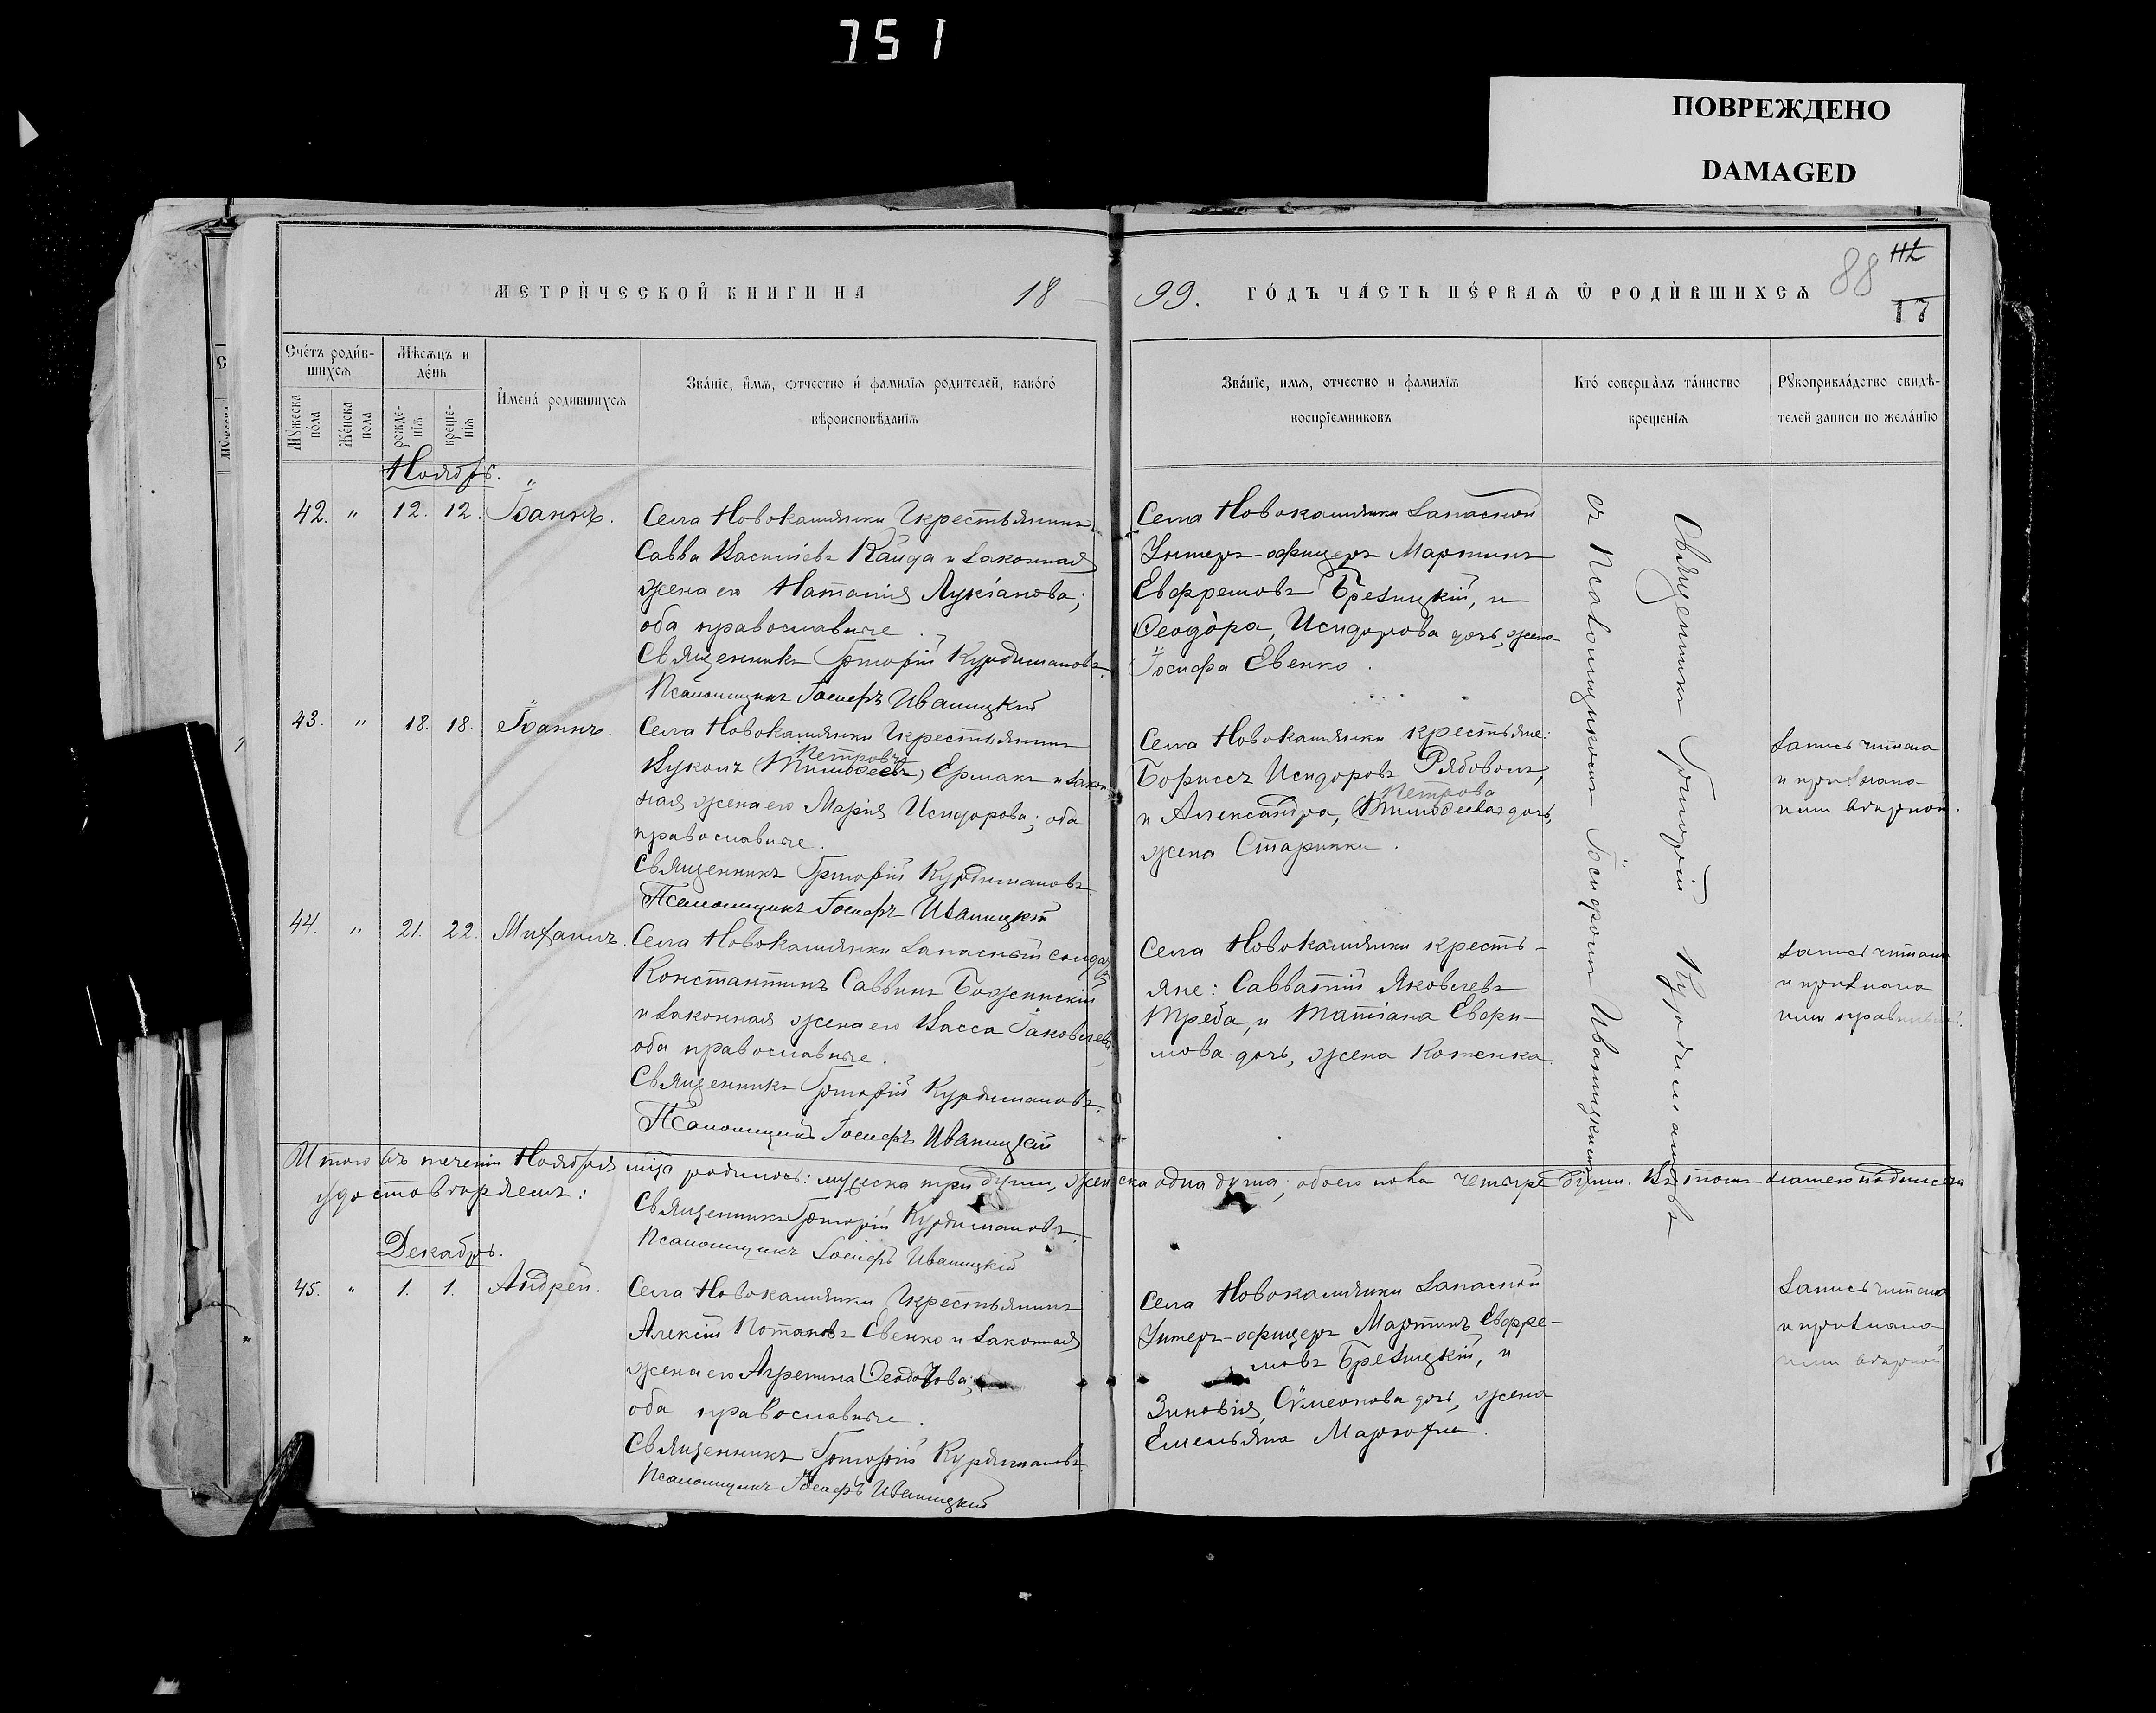 751
ПОВРЕЖДЕНО
DAMAGED
МЕТРИ́ЧЕСКОЙ КНИГИ НА 18
99. ГО́ДЪ ЧА́СТЬ ПЕ́РВАѦ Ѿ РОДИ́ВШИХСѦ
88
112
17
Сче́тъ роди́в-
шихсѧ
Мѣсѧцъ и
де́нь
Мꙋжеска
по́ла
Же́нска
пола
рожде-
нїѧ
креще-
нїѧ
И҆мена́ родившихсѧ
Зва́нїе, и҆́мѧ, ѻтчество и҆ фамилїѧ родителей, како́гѡ
вѣроисповѣданїѧ
Зва́нїе, имѧ, отчество и фамилїѧ
воспрїемниковъ
Кто́ соверша́лъ та́инство
крещенїѧ
Рꙋкоприкла́дство свидѣ-
телей записи по жела́нїю
Ноябрь.
42. " 12. 12. Іоаннъ.
Села Новокамянки крестьянинъ
Савва Василіевъ Кайда и законная
жена его Наталія Лукіанова;
оба православные.
Священникъ Григорій Курдимановъ.
Псаломщикъ Іосифъ Иваницкій
Села Новокамянки запасной
Унтеръ-офицеръ Мартинъ
Евфремовъ Брезицкій, и
Ѳеодо̀ра, Исидорова дочь, жена
Іосифа Евенко.
43. " 18. 18. Іоаннъ.
Села Новокамянки крестьянинъ
Петровъ
Вуколъ (Тимоѳеевъ) Ермакъ и закон
ная жена его Марія Исидорова; оба
православные.
Священникъ Григорій Курдимановъ.
Псаломщикъ Іосифъ Иваницкій
Села Новокамянки крестьяне:
Борисъ Исидоровъ Рябоволъ,
Петрова
и Александра, (Тимоѳеева) дочь,
жена Старинки.
Запись читана
и признана
ими вѣрной.
44. " 21. 22. Михаилъ.
Села Новокамянки запасный солдатъ
Константинъ Саввинъ Божинскій
и законная жена его Васса Іаковлева
оба православные.
Священникъ Григорій Курдимановъ.
Псаломщикъ Іосифъ Иваницкій
Села Новокамянки кресть-
яне: Савватій Яковлевъ
Треба, и Татіана Евфи-
мова дочь, жена Котенка
Запись читана
и признана
ими правильной.
Священникъ Григорій Курдимановъ
съ Псаломщикомъ Іосифомъ Иваницкимъ
Итого въ теченіи Ноября мца родилось: мужеска три души, женска одна душа; обоего пола четыре души. Въ томъ нашею подписью
удостовѣряемъ:
Священникъ Григорій Курдимановъ.
Псаломщикъ Іосифъ Иваницкій
Декабрь.
45. " 1. 1. Андрей.
Села Новокамянки крестьянинъ
Алексій Потаповъ Евенко и законная
жена его Агрепина Ѳеодорова;
оба православные.
Священникъ Григорій Курдимановъ.
Псаломщикъ Іосифъ Иваницкій
Села Новокамянки запасной
Унтеръ-офицеръ Мартинъ Евфре-
мовъ Брезицкій, и
Зиновія, Сѵмеонова дочь, жена
Емельяна
Запись читана
и признана
ими вѣрной